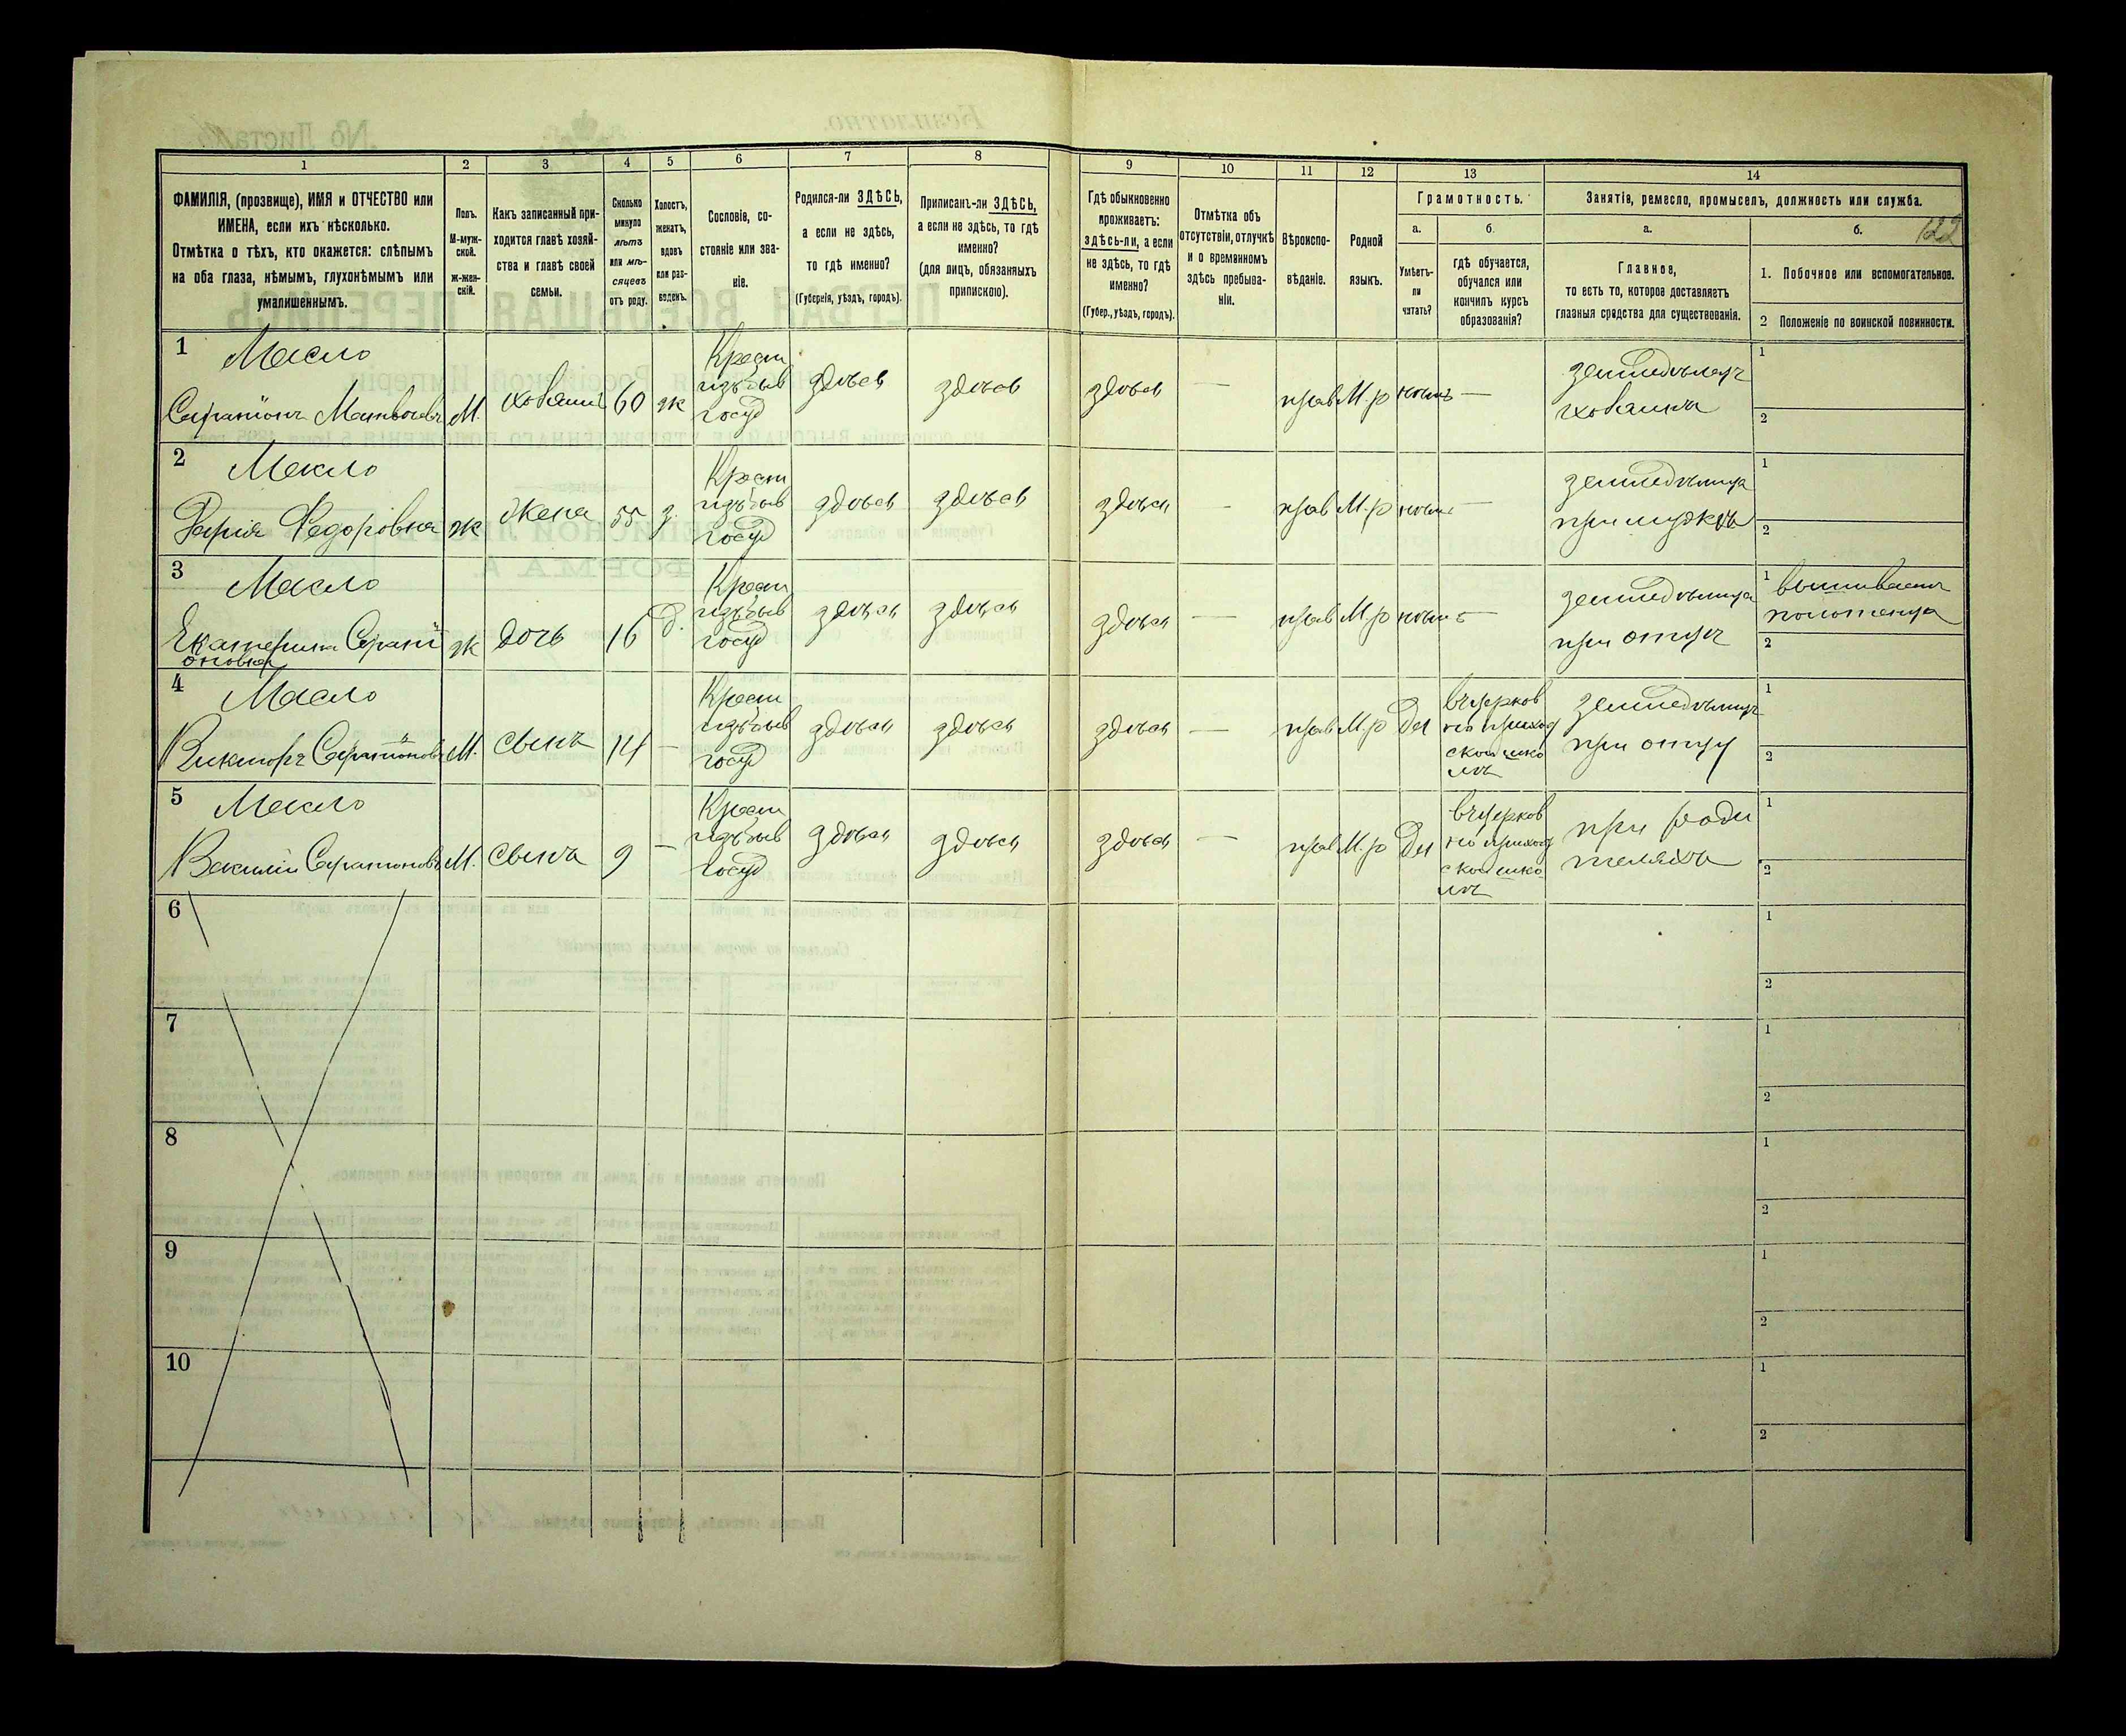 1 2 3 4 5 6 7 8 9 10 11 12 13 14
122
ФАМИЛІЯ, (прозвище), ИМЯ и ОТЧЕСТВО или
ИМЕНА, если ихъ нѣсколько.
Отмѣтка о тѣхъ, кто окажется: слѣпымъ
на оба глаза, нѣмымъ, глухонѣмымъ или
умалишеннымъ.
Полъ.
М-муж-
ской.
Ж-жен-
скій.
Какъ записанный при-
ходится главѣ хозяй-
ства и главѣ своей
семьи.
Сколько
минуло
лѣтъ
или мѣ-
сяцевъ
отъ роду.
Холостъ,
женатъ,
вдовъ
или раз-
веденъ.
Сословіе, со-
стояніе или зва-
ніе.
Родился-ли ЗДѢСЬ,
а если не здѣсь,
то гдѣ именно?
(Губернія, уѣздъ, городъ).
Приписанъ-ли ЗДѢСЬ,
а если не здѣсь, то гдѣ
именно?
(для лицъ, обязанныхъ
припискою).
Гдѣ обыкновенно
проживаетъ:
здѣсь-ли, а если
не здѣсь, то гдѣ
именно?
(Губер., уѣздъ, городъ).
Отмѣтка объ
отсутствіи, отлучкѣ
и о временномъ
здѣсь пребыва-
ніи.
Вѣроиспо-
вѣданіе.
Родной
языкъ.
Грамотность.
а.
Умѣетъ-
ли
читать?
б.
гдѣ обучается,
обучался или
кончилъ курсъ
образованія?
Занятіе, ремесло, промыселъ, должность или служба.
а.
Главное,
то есть то, которое доставляетъ
главныя средства для существованія.
б.
1. Побочное или вспомогательное.
2 Положеніе по воинской повинности.
1 Масло
Серапіонъ Матвѣевъ М. хозяинъ 60 ж
Крест
изъ быв
госуд
здѣсь здѣсь здѣсь — прав М.р нѣтъ —
земледѣлецъ
хозяинъ
1
2
2 Масло
Дарія Федоровна ж жена 55 з.
Крест
изъ быв
госуд
здѣсь здѣсь здѣсь - прав М.р нѣтъ —
земледѣлица
при мужѣ
1
2
3 Масло
Екатерина Серапі
оновна ж дочь 16 д.
Крест
изъ быв
госуд
здѣсь здѣсь здѣсь — прав М.р нѣтъ —
земледѣлица
при отцѣ
1 вышиваетъ
полотенца
2
4 Масло
Викторъ Серапіоновъ М. сынъ 14 —
Крест
изъ быв
госуд
здѣсь здѣсь здѣсь — прав М.р Да
въ церков
но приход
ской шко
лѣ
земледѣлецъ
при отцу
1
2
5 Масло
Василій Серапіоновъ М. сынъ 9 —
Крест
изъ быв
госуд
здѣсь здѣсь здѣсь — прав М.р Да
въ церков
но приход
ской шко
лѣ
при роди
теляхъ
1
2
6
1
2
7
1
2
8
1
2
9
1
2
10
1
2